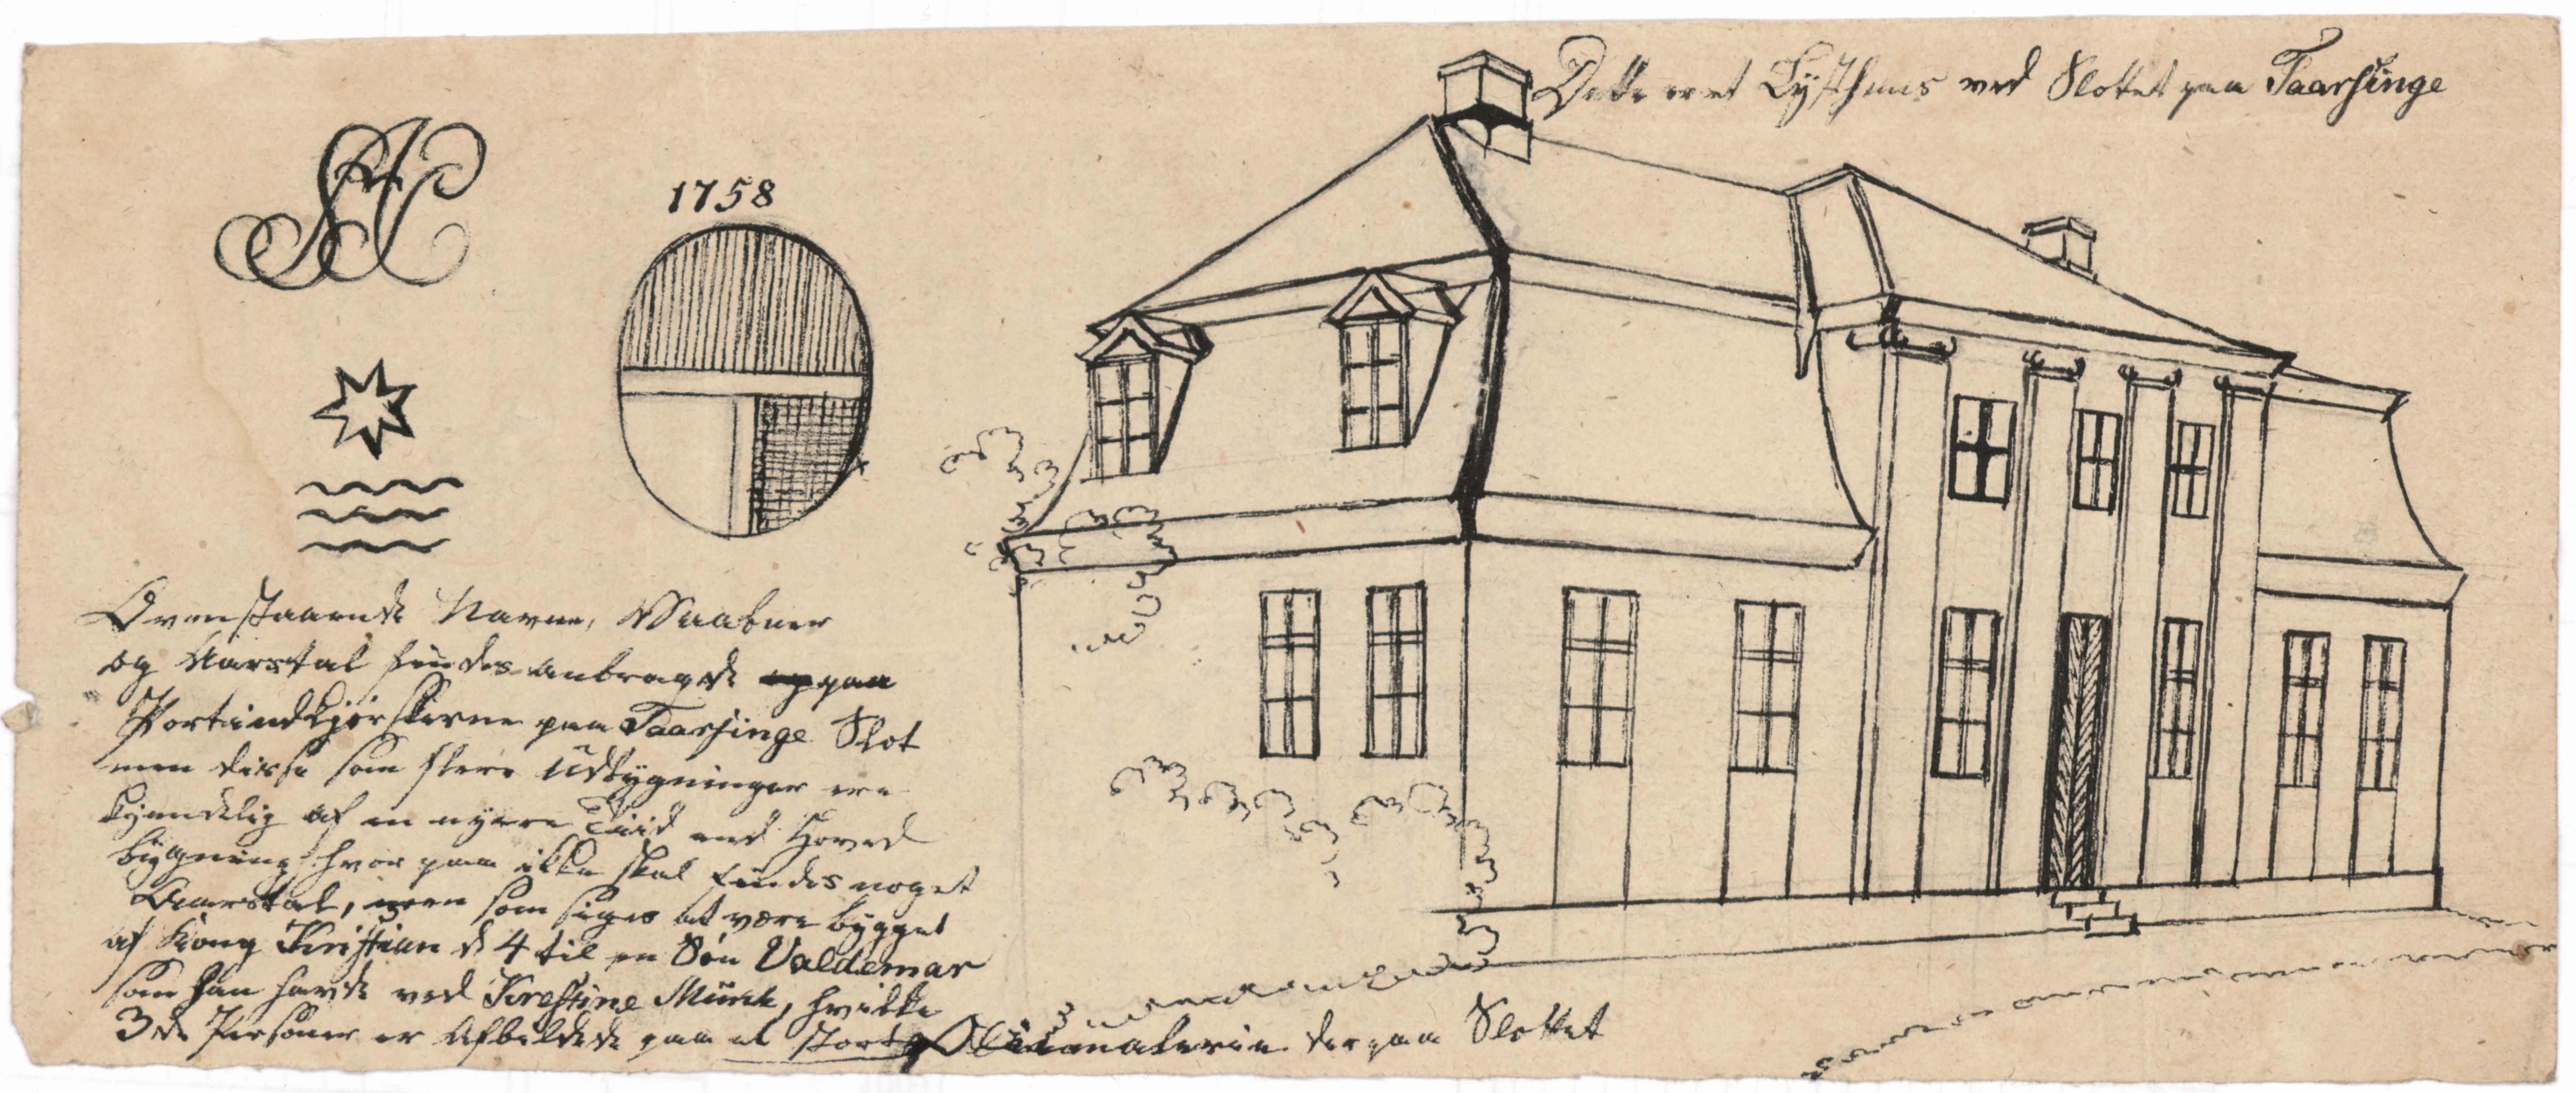 Dette er et Lysthuus ved Slottet paa Taarsinge
1758
Ovenstaaende Navne, Vaabner
og Aarstal findes anbragde paa
Portindkjørslerne paa Taarsinge Slot
men disse som flere Udbygninger ere
kjendelig af en nyere Tiid end Hoved
bygning hvor paa ikke skal findes noget
Aarstal, men som siges at være bygget
af Kong Kristian d 4 til en Søn Valdemar
som han havde ved Krestine Münk, hvilke
3de Personer er Afbildede paa et stort Malerie der paa Slottet